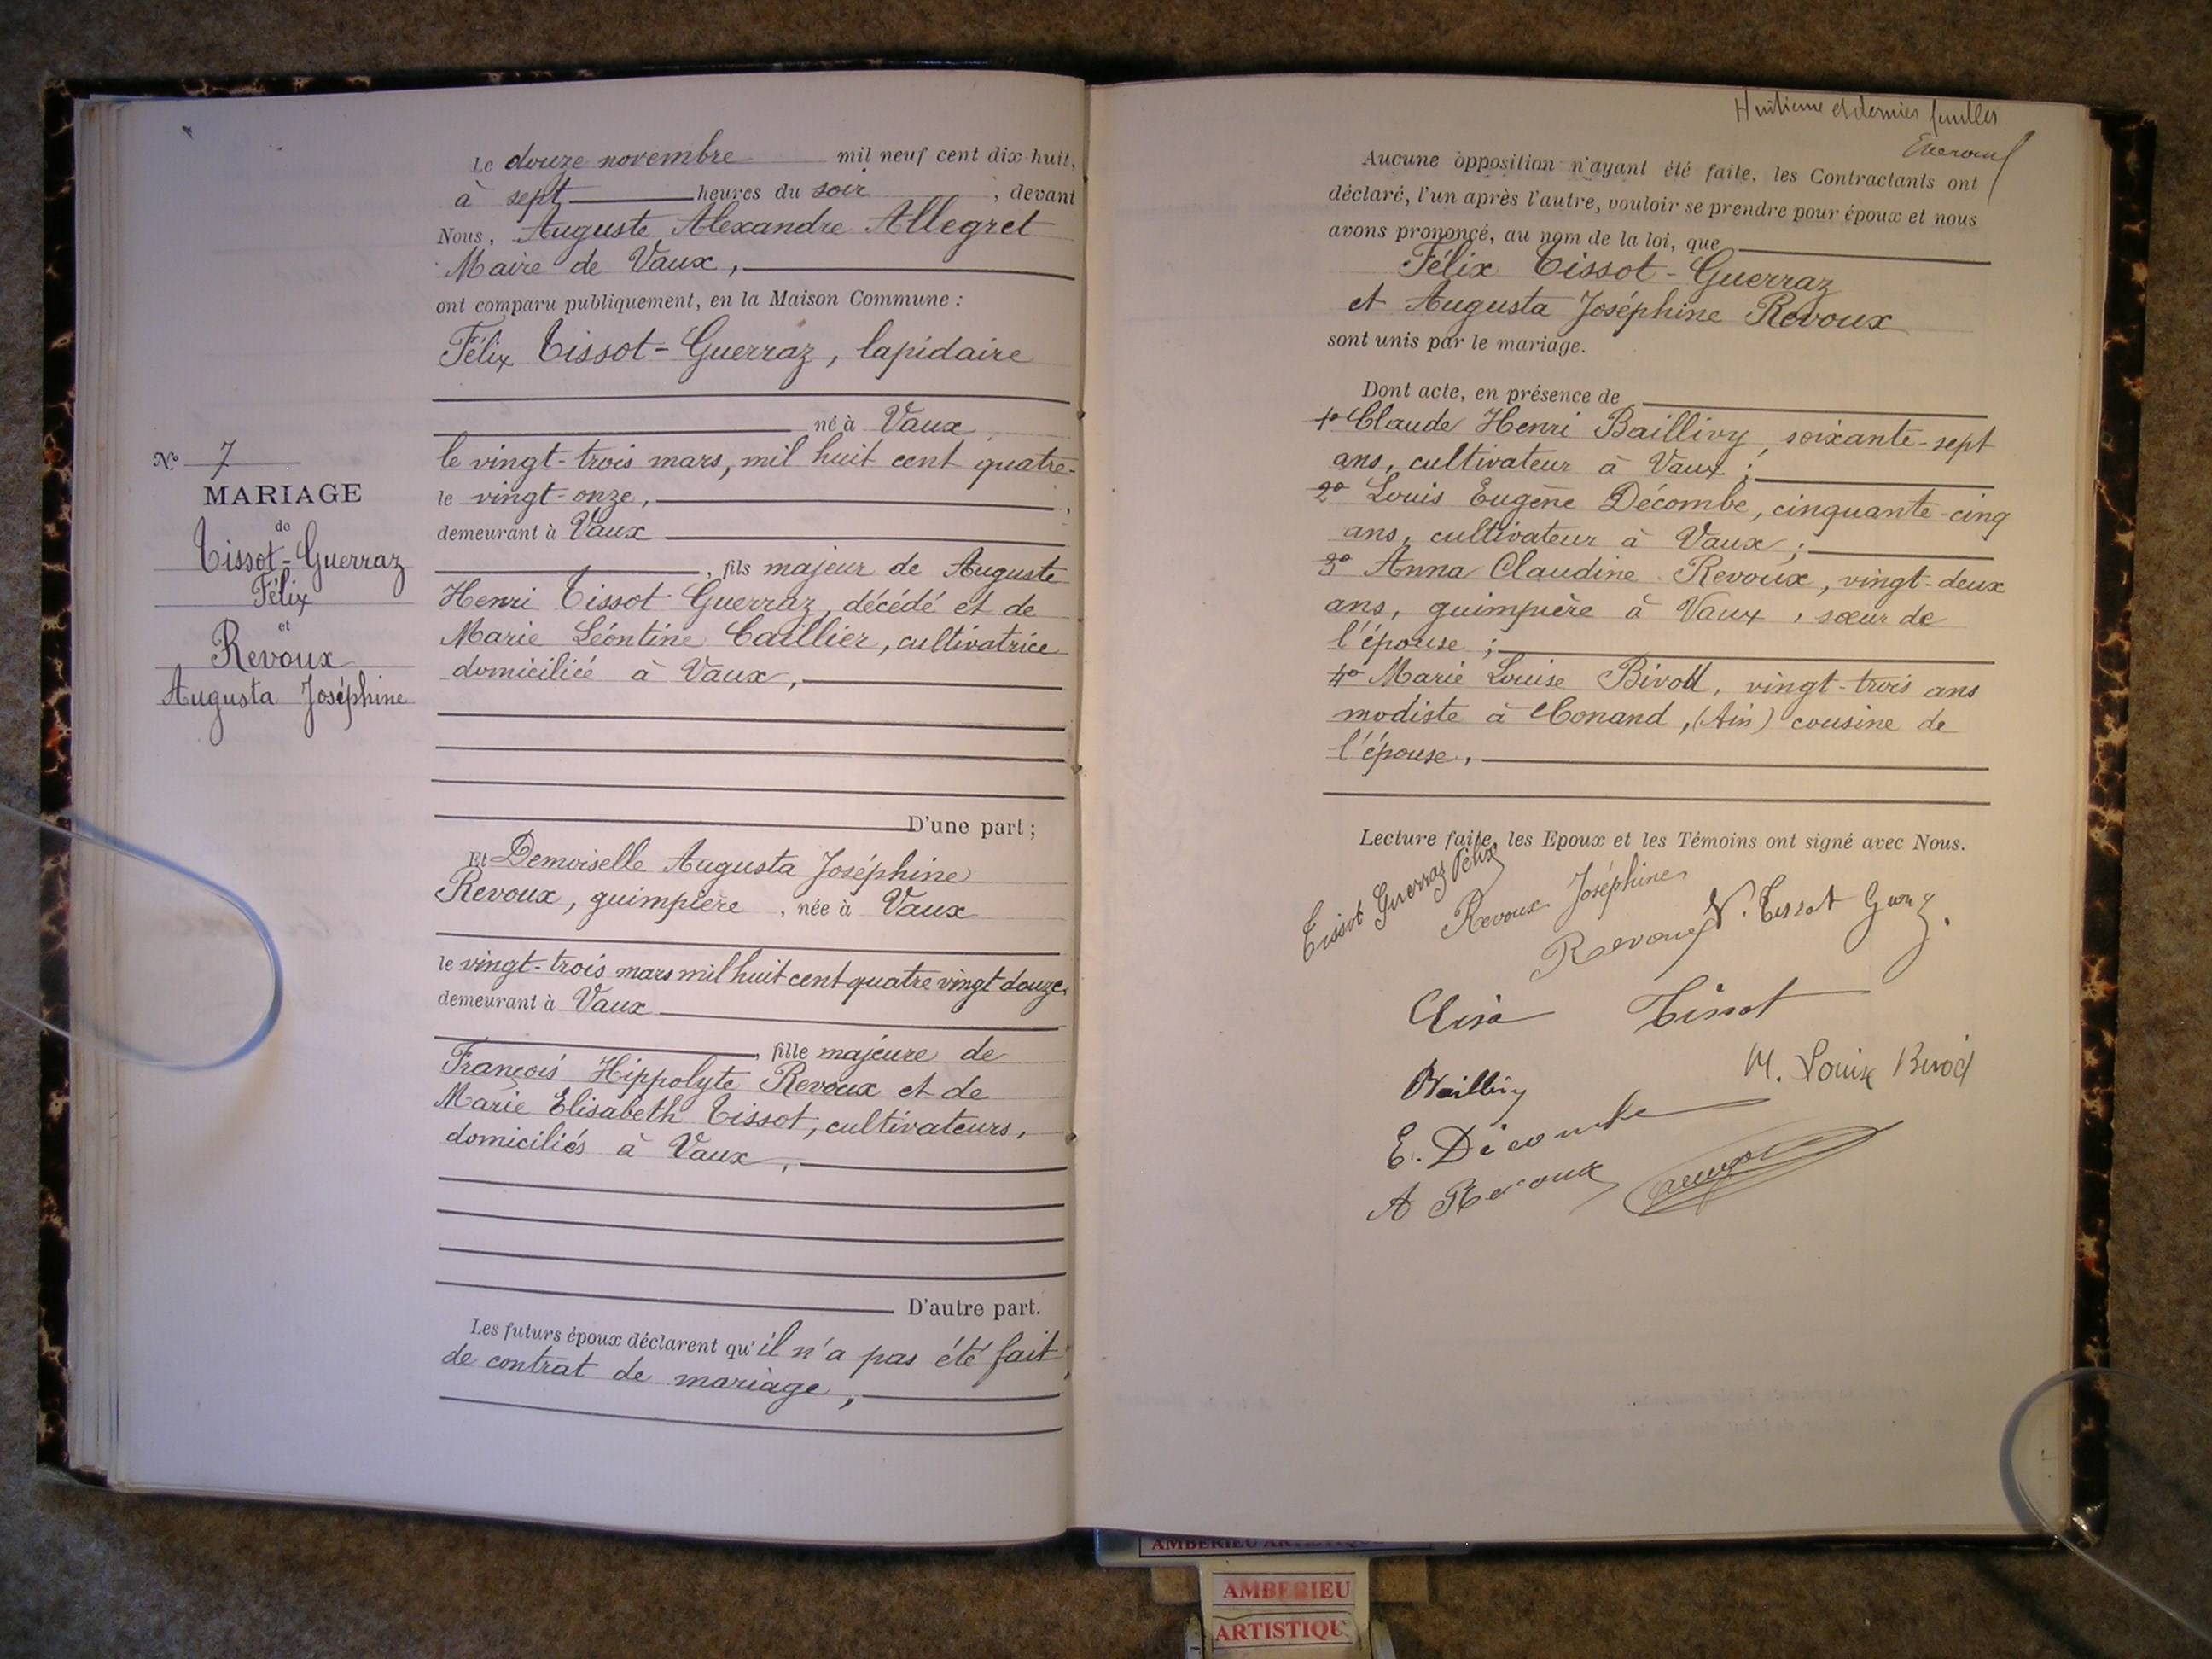 Le douze novembre mil neuf cent dix-huit,
à sept heures du soir, devant
Nous, Auguste Alexandre Allegret
Maire de Vaux,
ont comparu publiquement, en la Maison Commune :
Félix Tissot-Guerraz, lapidaire
né à Vaux
le vingt-trois mars, mil huit cent quatre-
le vingt-onze,
demeurant à Vaux
, fils majeur de Auguste
Henri Tissot Guerraz, décédé et de
Marie Léontine Caillier, cultivatrice
domiciliée à Vaux,
D'une part ;
Et Demoiselle Augusta Joséphine
Revoux, guimpière, née à Vaux
le vingt-trois mars mil huit cent quatre vingt douze,
demeurant à Vaux
, fille majeure de
François Hippolyte Revoux et de
Marie Elisabeth Tissot, cultivateurs,
domiciliés à Vaux,
D'autre part.
Les futurs époux déclarent qu'il n'a pas été fait
de contrat de mariage,
N° 7
MARIAGE
de
Tissot-Guerraz
Félix
et
Revoux
Augusta Joséphine
Huitième et dernier feuillet
Aucune opposition n'ayant été faite, les Contractants ont
déclaré, l'un après l'autre, vouloir se prendre pour époux et nous
avons prononcé, au nom de la loi, que
Félix Tissot-Guerraz
et Augusta Joséphine Revoux
sont unis par le mariage.
Dont acte, en présence de
1° Claude Henri Baillivy, soixante-sept
ans, cultivateur à Vaux ;
2° Louis Eugène Décombe, cinquante-cinq
ans, cultivateur à Vaux ;
3° Anna Claudine Revoux, vingt-deux
ans, guimpière à Vaux, sœur de
l'épouse ;
4° Marie Louise Bivod, vingt-trois ans
modiste à Conand, (Ain) cousine de
l'épouse,
Lecture faite, les Epoux et les Témoins ont signé avec Nous.
Tissot Guerraz Félix
Revoux Joséphine
Revoux V. Tissot Guerz.
Elisa Tissot
Baillivy M. Louise Bivod
E. Décombe
A Revoux
AMBERIEU ARTISTIQUE
AMBERIEU
ARTISTIQU